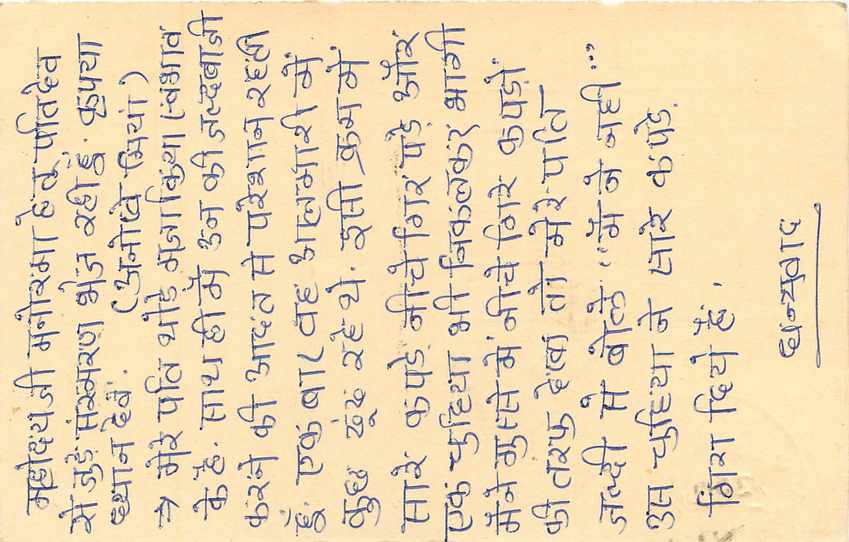 महोदयजी मनोरमा हेतू पतिदेव
से जुड़े संस्मरण भेज रही हूँ. कृपया
ध्यान देवें. (अनोखे मियां)
→ मेरे पति थोडे मनाकिया स्वभाव
के है. साथ ही मैं उन की जल्दबाजी
करने की आदत से परेशान रहती
हूँ. एक बार वह आलमारी में
कुछ ढूंढ रहे थे. इसी क्रम में
सारे कपड़े नीचे गिर पड़े और
एक चुहिया भी निकलकर भागी
मैंने गुस्से में नीचे गिरे कपड़ों
की तरफ देखा तो मेरे पति
जल्दी से बोले "मैं ने नहीं...
उस चुहिया ने सारे कपड़े
गिरा दिये हैं.
धन्यवाद